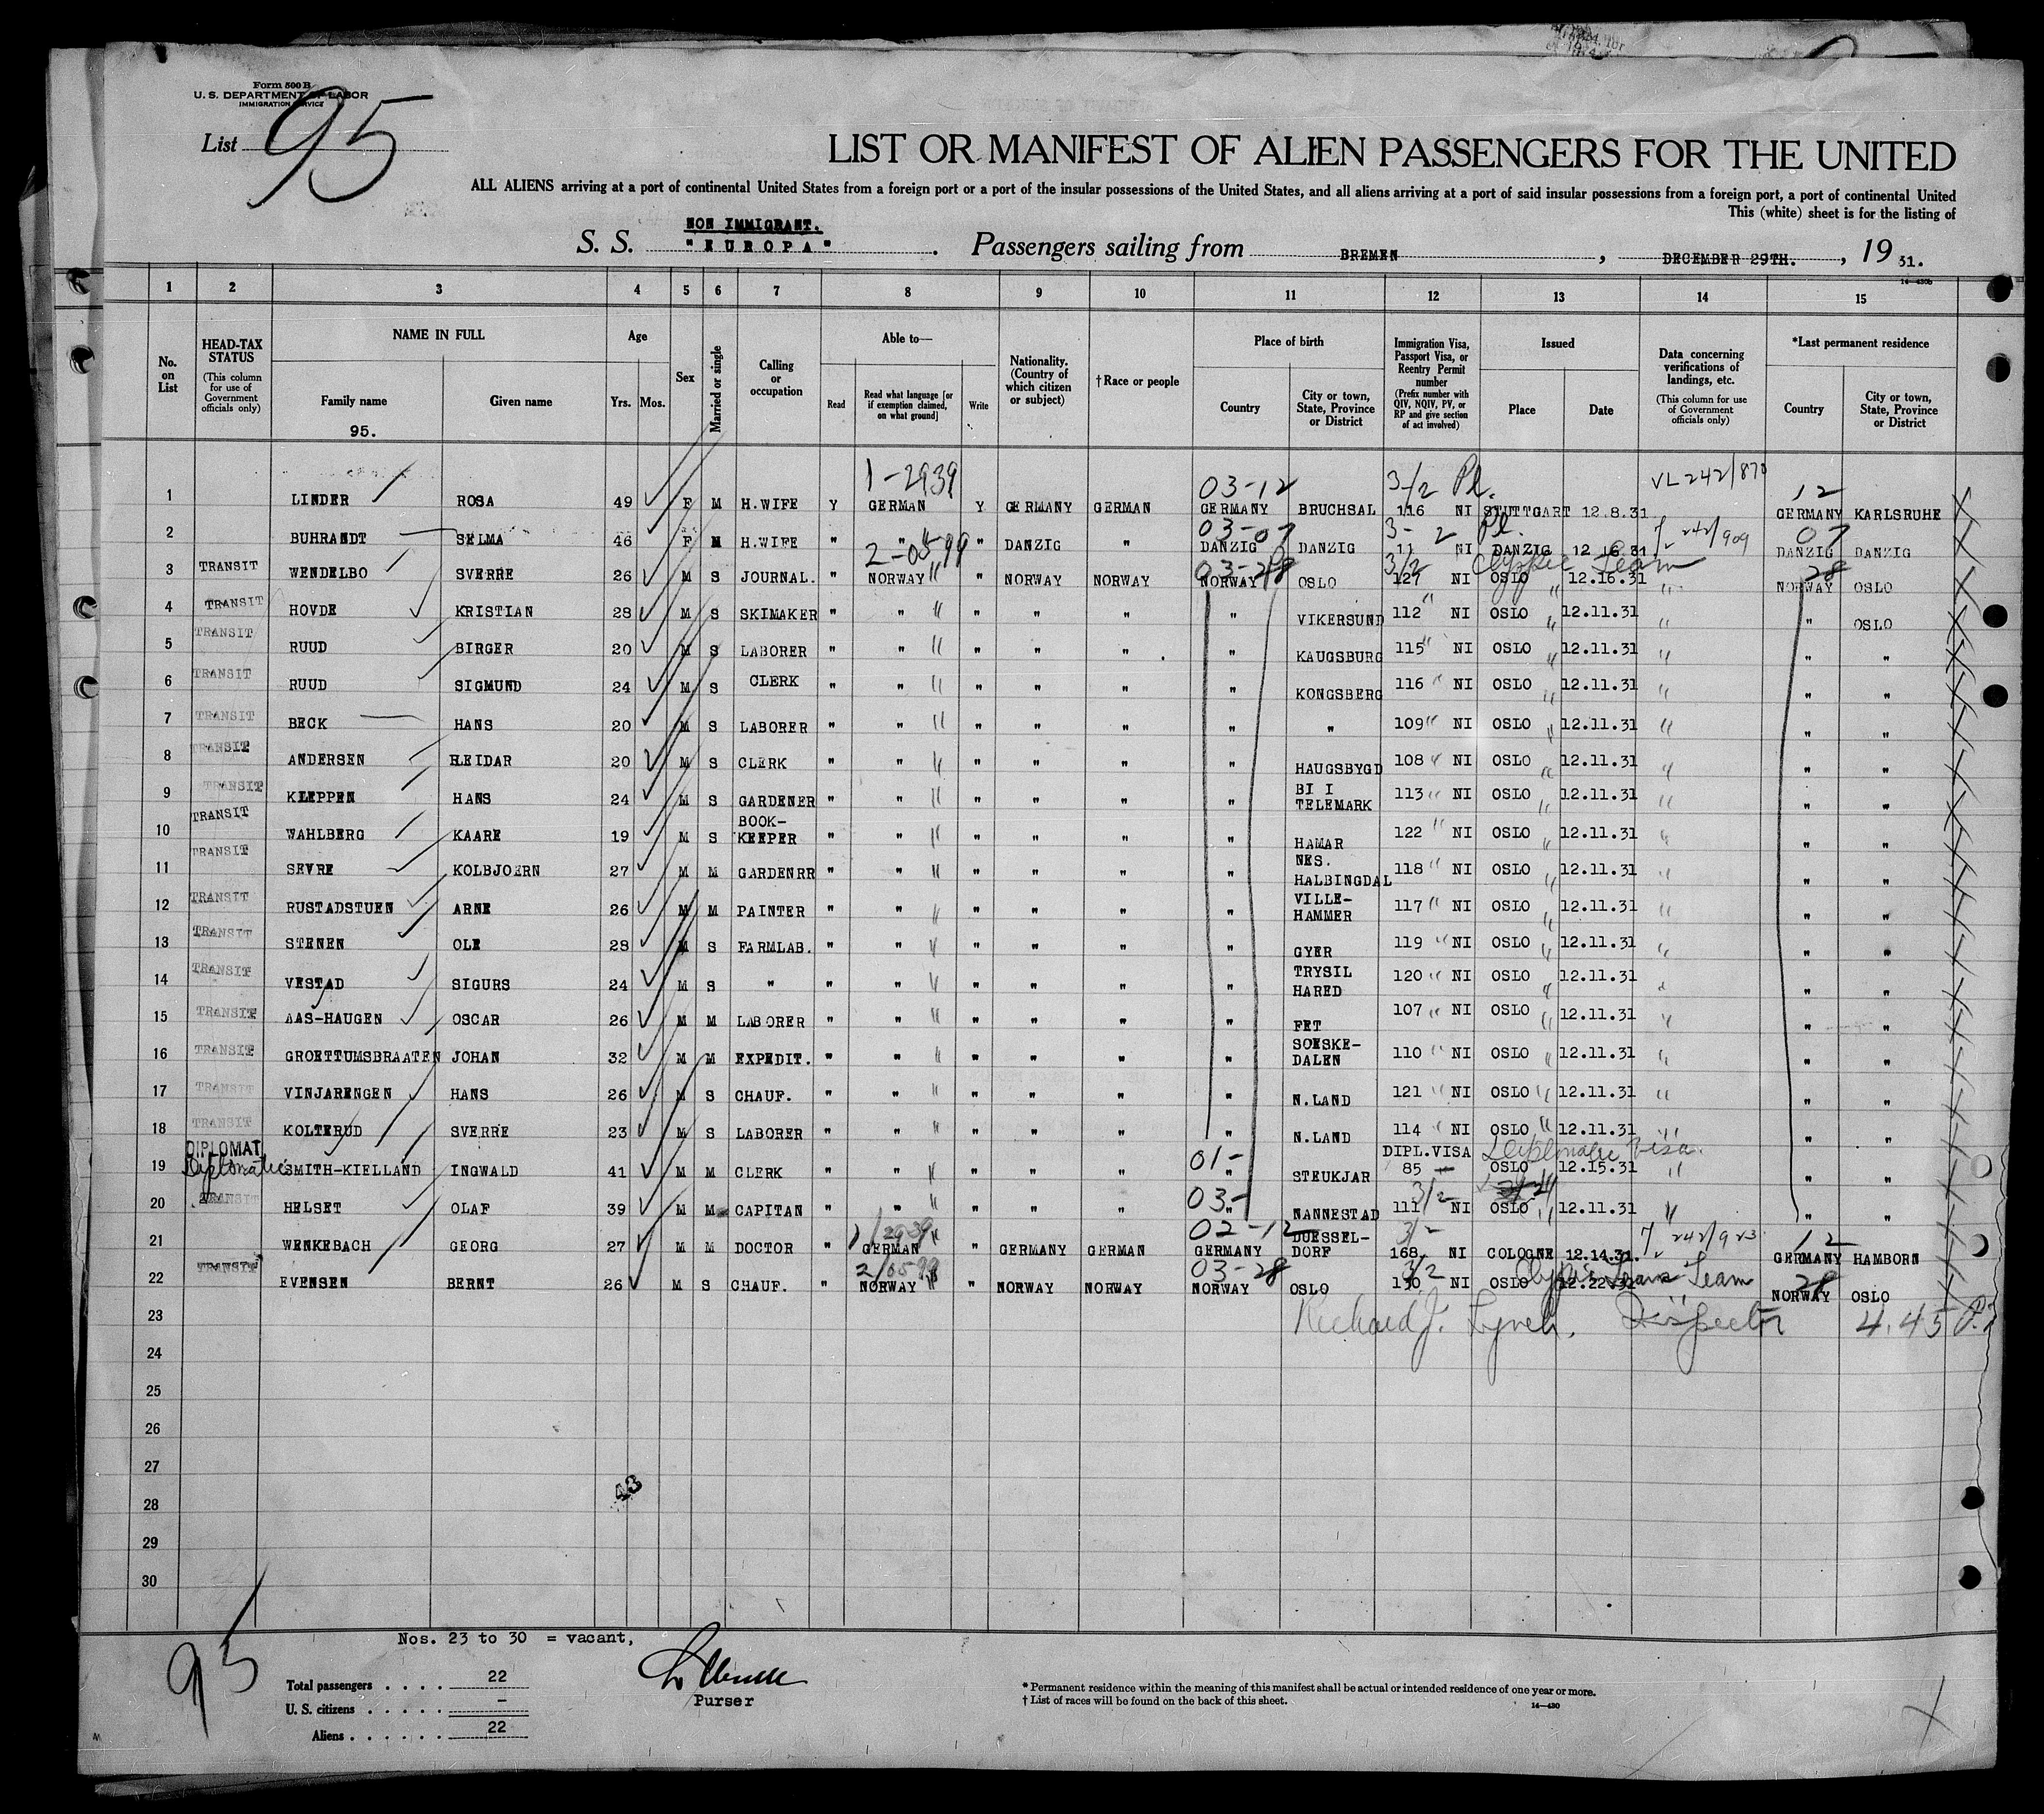 Form 500 B
U. S. DEPARTMENT OF LABOR
IMMIGRATION SERVICE
List 95
LIST OR MANIFEST OF ALIEN PASSENGERS FOR THE UNITED
ALL ALIENS arriving at a port of continental United States from a foreign port or a port of the insular possessions of the United States, and all aliens arriving at a port of said insular possessions from a foreign port, a port of continental United
This (white) sheet is for the listing of
NON IMMIGRANT.
S. S. "EUROPA". Passengers sailing from BREMEN, DECEMBER 29TH., 19 31.
14—430b
1 2 3 4 5 6 7 8 9 10 11 12 13 14 15
No. on List
HEAD-TAX STATUS (This column for use of Government officials only)
NAME IN FULL
Family name
95.
Given name
Age
Yrs. Mos.
Sex
Married or single
Calling or occupation
Able to—
Read
Read what language [or if exemption claimed, on what ground]
Write
Nationality. (Country of which citizen or subject)
†Race or people
Place of birth
Country
City or town, State, Province or District
Immigration Visa, Passport Visa, or Reentry Permit number (Prefix number with QIV, NQIV, PV, or RP and give section of act involved)
Issued
Place
Date
Data concerning verifications of landings, etc. (This column for use of Government officials only)
*Last permanent residence
Country
City or town, State, Province or District
1-2939 03-12 3/2 Pl. VL 242/870 12
1 LINDER ROSA 49 F M H.WIFE Y GERMAN Y GERMANY GERMAN GERMANY BRUCHSAL 116 NI STUTTGART 12.8.31 GERMANY KARLSRUHE
03-07 3-2 Pl. 242/909 07
2 BUHRANDT SELMA 46 F M H.WIFE " " " DANZIG " DANZIG DANZIG 11 NI DANZIG 12 16.31 DANZIG DANZIG
2-0599 03-28 3/2 Team 28
3 TRANSIT WENDELBO SVERRE 26 M S JOURNAL. " NORWAY " NORWAY NORWAY NORWAY OSLO 127 NI OSLO 12.16.31 NORWAY OSLO
4 TRANSIT HOVDE KRISTIAN 28 M S SKIMAKER " " " " " " VIKERSUND 112 NI OSLO 12.11.31 " OSLO
5 TRANSIT RUUD BIRGER 20 M S LABORER " " " " " " KAUGSBURG 115 NI OSLO 12.11.31 " "
6 TRANSIT RUUD SIGMUND 24 M S CLERK " " " " " " KONGSBERG 116 NI OSLO 12.11.31 " "
7 TRANSIT BECK HANS 20 M S LABORER " " " " " " " 109 NI OSLO 12.11.31 " "
8 TRANSIT ANDERSEN REIDAR 20 M S CLERK " " " " " " HAUGSBYGD 108 NI OSLO 12.11.31 " "
9 TRANSIT KLEPPEN HANS 24 M S GARDENER " " " " " " BI I TELEMARK 113 NI OSLO 12.11.31 " "
10 TRANSIT WAHLBERG KAARE 19 M S BOOK-KEEPER " " " " " " HAMAR 122 NI OSLO 12.11.31 " "
11 TRANSIT SEVRE KOLBJOERN 27 M M GARDENRR " " " " " " NES. HALBINGDAL 118 NI OSLO 12.11.31 " "
12 TRANSIT RUSTADSTUEN ARNE 26 M M PAINTER " " " " " " VILLE-HAMMER 117 NI OSLO 12.11.31 " "
13 TRANSIT STENEN OLE 28 M S FARMLAB. " " " " " " GYER 119 NI OSLO 12.11.31 " "
14 TRANSIT VESTAD SIGURS 24 M S " " " " " " " TRYSIL HARED 120 NI OSLO 12.11.31 " "
15 TRANSIT AAS-HAUGEN OSCAR 26 M M LABORER " " " " " " FET 107 NI OSLO 12.11.31 " "
16 TRANSIT GROETTUMSBRAATEN JOHAN 32 M M EXPEDIT. " " " " " " SOESKE-DALEN 110 NI OSLO 12.11.31 " "
17 TRANSIT VINJARENGEN HANS 26 M S CHAUF. " " " " " " N.LAND 121 NI OSLO 12.11.31 " "
18 TRANSIT KOLTERUD SVERRE 23 M S LABORER " " " " " " N.LAND 114 NI OSLO 12.11.31 " "
DIPLOMAT 01- DIPL.VISA Diplomatic Visa.
19 Diplomatic SMITH-KIELLAND INGWALD 41 M M CLERK " " " " " " STEUKJAR 85 OSLO 12.15.31 " "
03- 3/2
20 TRANSIT HELSET OLAF 39 M M CAPITAN " " " " " " NANNESTAD 111 NI OSLO 12.11.31 " "
1/2939 02-12 3/2 242/923 12
21 WENKEBACH GEORG 27 M M DOCTOR " GERMAN " GERMANY GERMAN GERMANY DUESSEL-DORF 168 NI COLOGNE 12.14.31. GERMANY HAMBORN
2/0599 03-28 3/2 Team 28
22 TRANSIT EVENSEN BERNT 26 M S CHAUF. " NORWAY " NORWAY NORWAY NORWAY OSLO 130 NI OSLO 12.22.31 NORWAY OSLO
23 Richard J. Lynch. Inspector 4.45
24
25
26
27
28 43
29
30
Nos. 23 to 30 = vacant,
95
Total passengers .... 22
U. S. citizens ..... –
Aliens ...... 22
Purser
* Permanent residence within the meaning of this manifest shall be actual or intended residence of one year or more.
† List of races will be found on the back of this sheet.
14—430